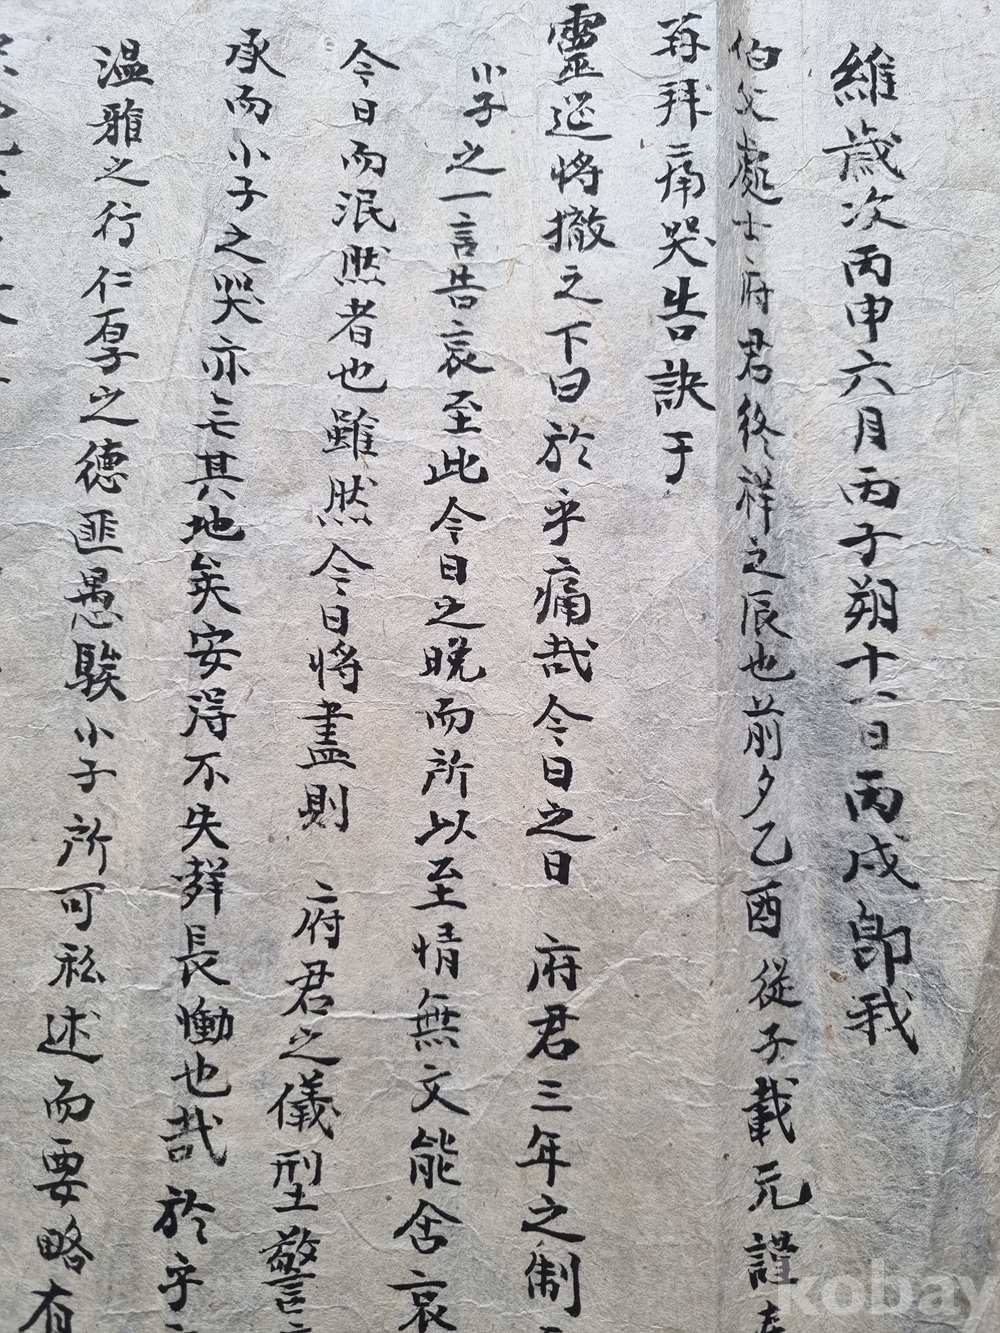 維歲次丙申六月丙子朔十一日丙戌卽我
伯父處士府君終祥之辰也前夕乙酉從子載元謹
再拜痛哭告訣于
靈筵將撤之下曰於乎痛哉今日之日 府君三年之制
小子之一言告哀至此今日之晚而所以至情無文能舍哀
今日而泯然者也雖然今日將盡則 府君之儀型警
承而小子之哭亦无其地矣安得不失聲長慟也哉於乎
溫雅之行仁厚之德匪愚騃小子所可私述而要略有
kobay